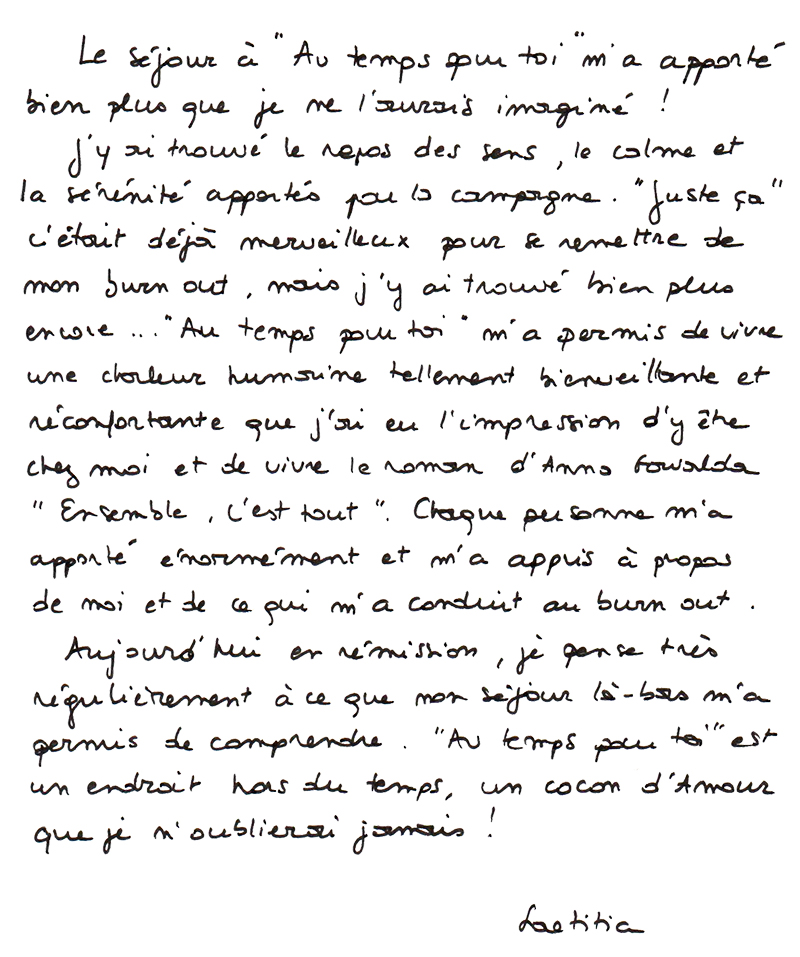 Le séjour à "Au temps pour toi" m'a apporté
bien plus que je ne l'aurais imaginé !
J'y ai trouvé le repos des sens, le calme et
la sérénité apportés par la campagne. "Juste ça"
c'était déjà merveilleux pour se remettre de
mon burn out, mais j'y ai trouvé bien plus
encore ... "Au temps pour toi" m'a permis de vivre
une chaleur humaine tellement bienveillante et
réconfortante que j'ai eu l'impression d'y être
chez moi et de vivre le roman d'Anna Gavalda
"Ensemble, c'est tout". Chaque personne m'a
apporté énormément et m'a appris à propos
de moi et de ce qui m'a conduit au burn out.
Aujourd'hui en rémission, je pense très
régulièrement à ce que mon séjour là-bas m'a
permis de comprendre. "Au temps pour toi" est
un endroit hors du temps, un cocon d'Amour
que je n'oublierai jamais !
Laetitia